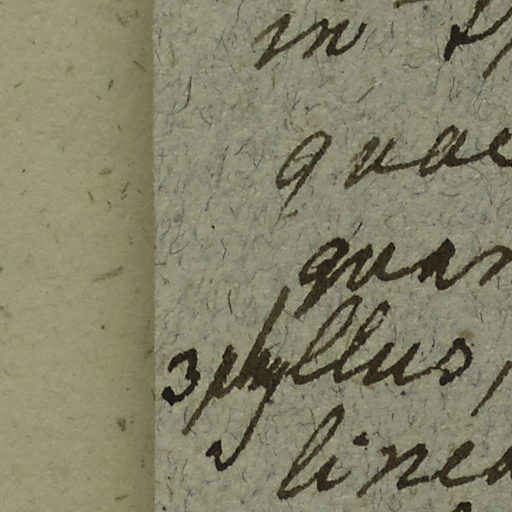 in
quae
quan
3phyllus,
linea